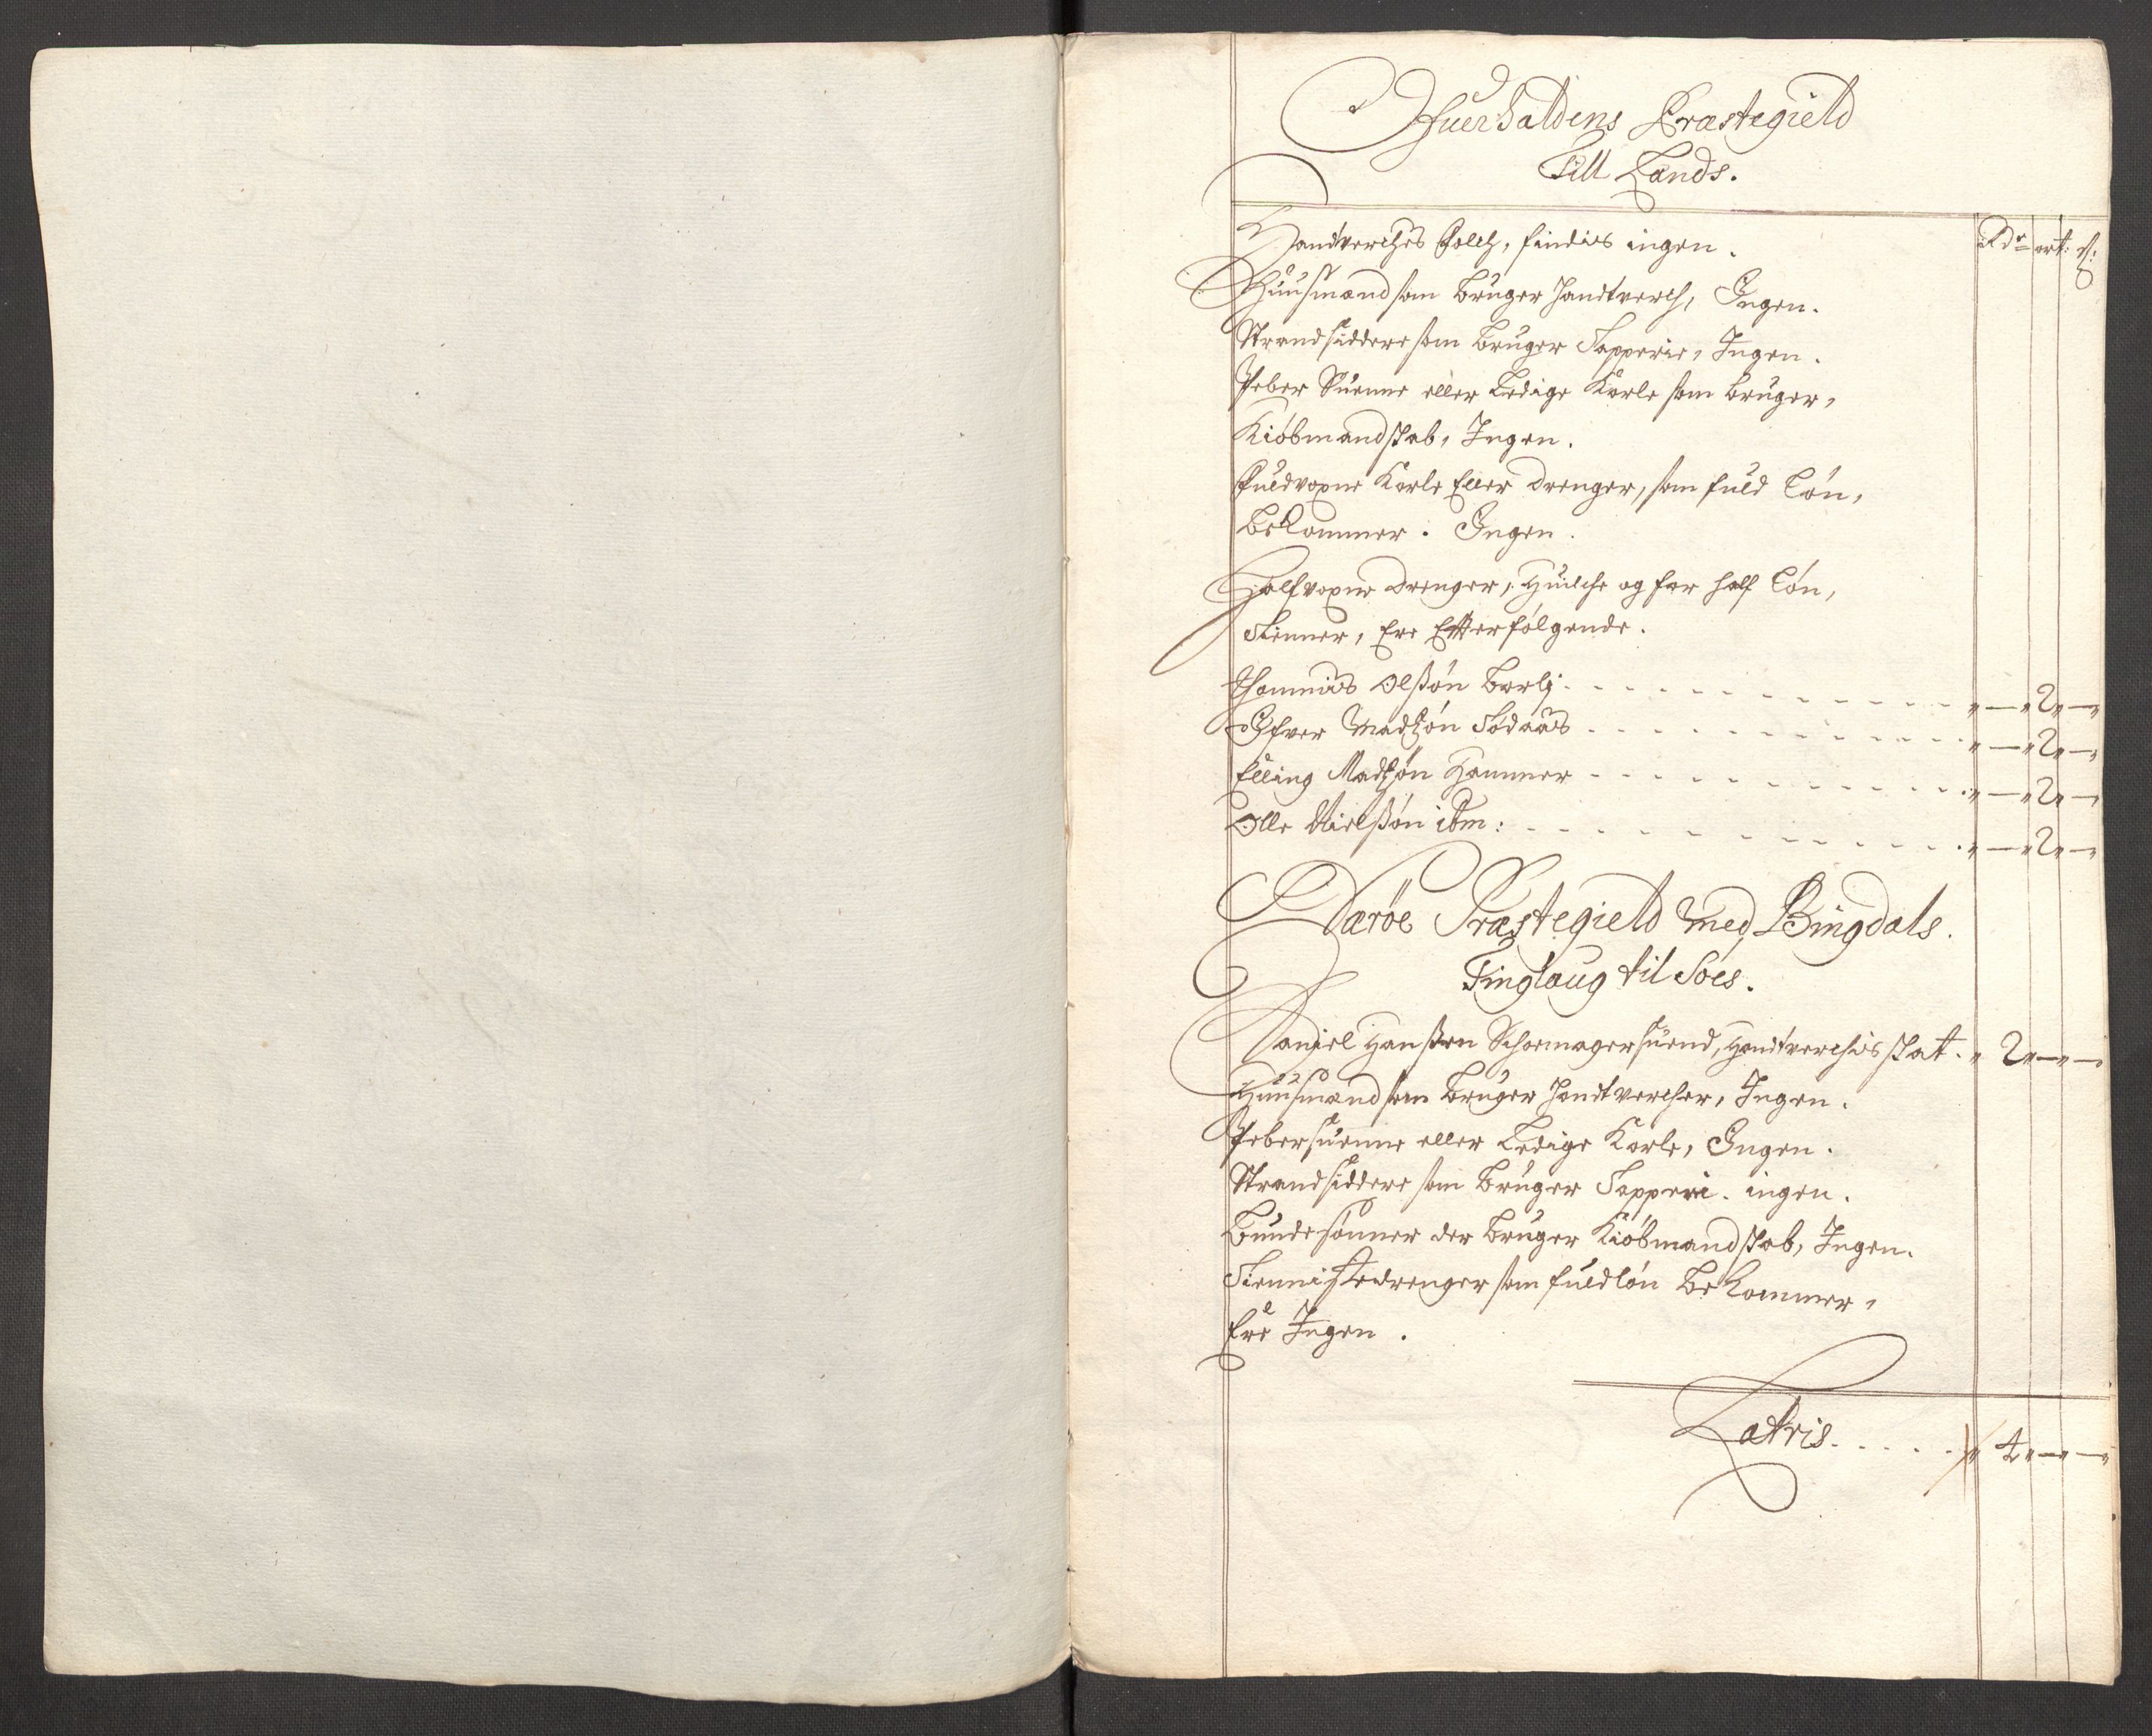 Ofuerhaldens Præstegield
Till Lands.
Rdr ort: s:
Handverchs Folch, findis ingen.
Huusmænd som bruger handtverch, Ingen.
Strandsiddere som bruger Sapperie, Ingen.
Peber Suenne eller Ledige Karle som bruger,
Kiøbmandskab, Ingen.
Fuldvoxne Karle Eller drenger, som fuld løn,
bekommer. Ingen.
Halfvoxne drenger, Huilche og for half løn,
tienner, Ere Efterfølgende.
Thommis Olssøn Barlj - - - „ — „ 2 „ —
Ifver Madtzøn Sødaas - - - „ — „ 2 „ —
Elling Madtzøn Hammer - - - „ — „ 2 „ —
Olle Nielssøn ibm: - - - „ — „ 2 „ —
Nærøe Præstegield med Bingdals.
Tinglaug til Søes.
Daniel Hanssen Schoemagersuend, Handtverchis skat. „ 2 „ — „ —
Huusmænd som bruger handtvercher, Ingen.
Pebersuenne eller Ledige Karle, Ingen.
Strandsiddere som bruger Sapperi. ingen.
Bundesønner der bruger Kiøbmandskab, Ingen.
Tiennistedrenger som fuldløn bekommer,
Ere Ingen.
Latris. . . . . „ 4 „ — „ —